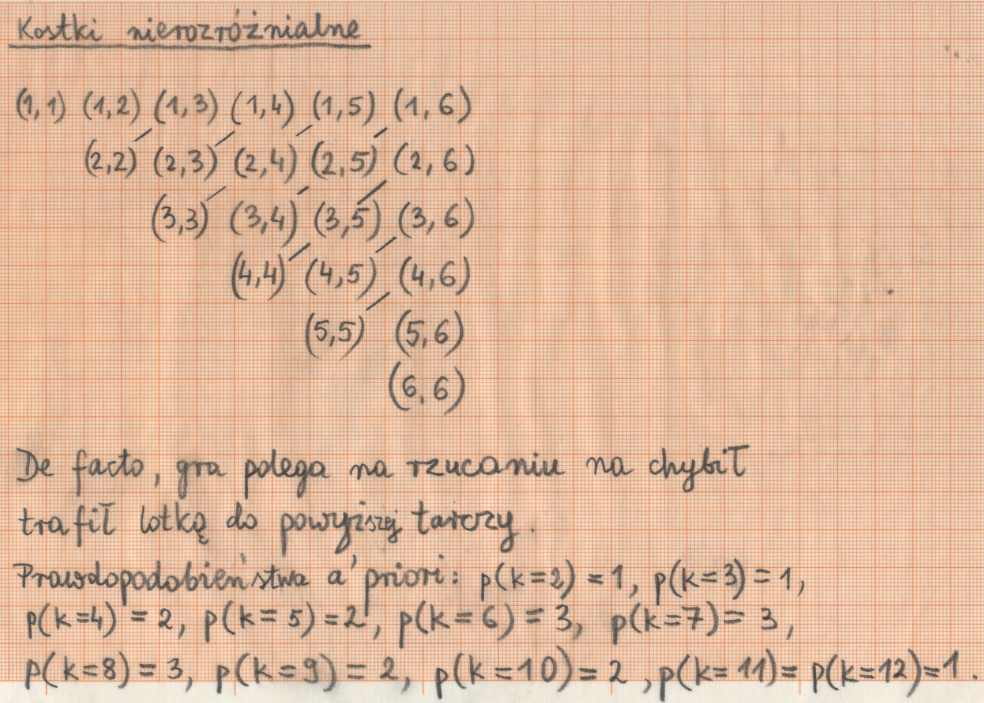 Kostki nierozróżnialne
(1,1) (1,2) (1,3) (1,4) (1,5) (1,6)
(2,2) (2,3) (2,4) (2,5) (2,6)
(3,3) (3,4) (3,5) (3,6)
(4,4) (4,5) (4,6)
(5,5) (5,6)
(6,6)
De facto, gra polega na rzucaniu na chybił
trafił lotką do powyższej tarczy.
Prawdopodobieństwa a'priori: p(k=2) = 1, p(k=3) = 1,
p(k=4) = 2, p(k=5) = 2, p(k=6) = 3, p(k=7) = 3,
p(k=8) = 3, p(k=9) = 2, p(k=10) = 2, p(k=11) = p(k=12) = 1.